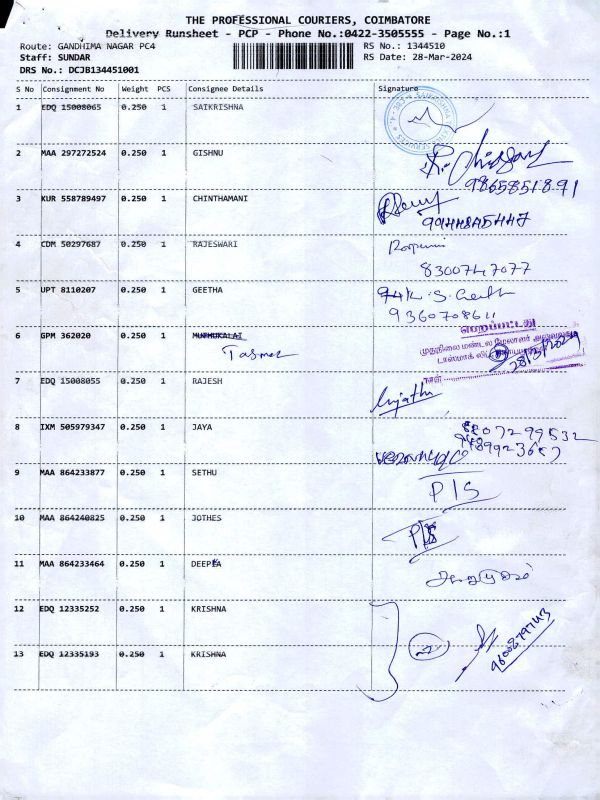 THE PROFESSIONAL COURIERS, COIMBATORE
Delivery Runsheet - PCP - Phone No.:0422-3505555 - Page No.:1
Route: GANDHIMA NAGAR PC4 RS No.: 1344510
Staff: SUNDAR RS Date: 28-Mar-2024
DRS No.: DCJB134451001
S No Consignment No Weight PCS Consignee Details Signature
1 EDQ 15008065 0.250 1 SAIKRISHNA
2 MAA 297272524 0.250 1 GISHNU
9865851891
3 KUR 558789497 0.250 1 CHINTHAMANI
4 CDM 50297687 0.250 1 RAJESWARI
8300747077
5 UPT 8110207 0.250 1 GEETHA
9360708611
6 GPM 362020 0.250 1 MUTHUKALAI
பெறப்பட்டது
28/3/2024
நாள்
7 EDQ 15008055 0.250 1 RAJESH
8 IXM 505979347 0.250 1 JAYA
9 MAA 864233877 0.250 1 SETHU
P/S
10 MAA 864240825 0.250 1 JOTHES
P/S
11 MAA 864233464 0.250 1 DEEPA
12 EDQ 12335252 0.250 1 KRISHNA
13 EDQ 12335193 0.250 1 KRISHNA